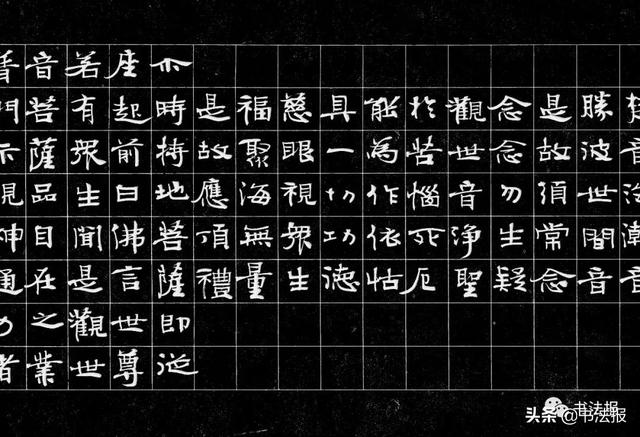 梵音海潮音
勝彼世間音
是故須常念
念念勿生疑
觀世音淨聖
於苦惱死厄
能為作依怙
具一切功德
慈眼視眾生
福聚海無量
是故應頂禮
尒時持地菩薩即從
座起前白佛言世尊
若有眾生聞是觀世
音菩薩品自在之業
普門示現神通力者
书法报
头条@书法报